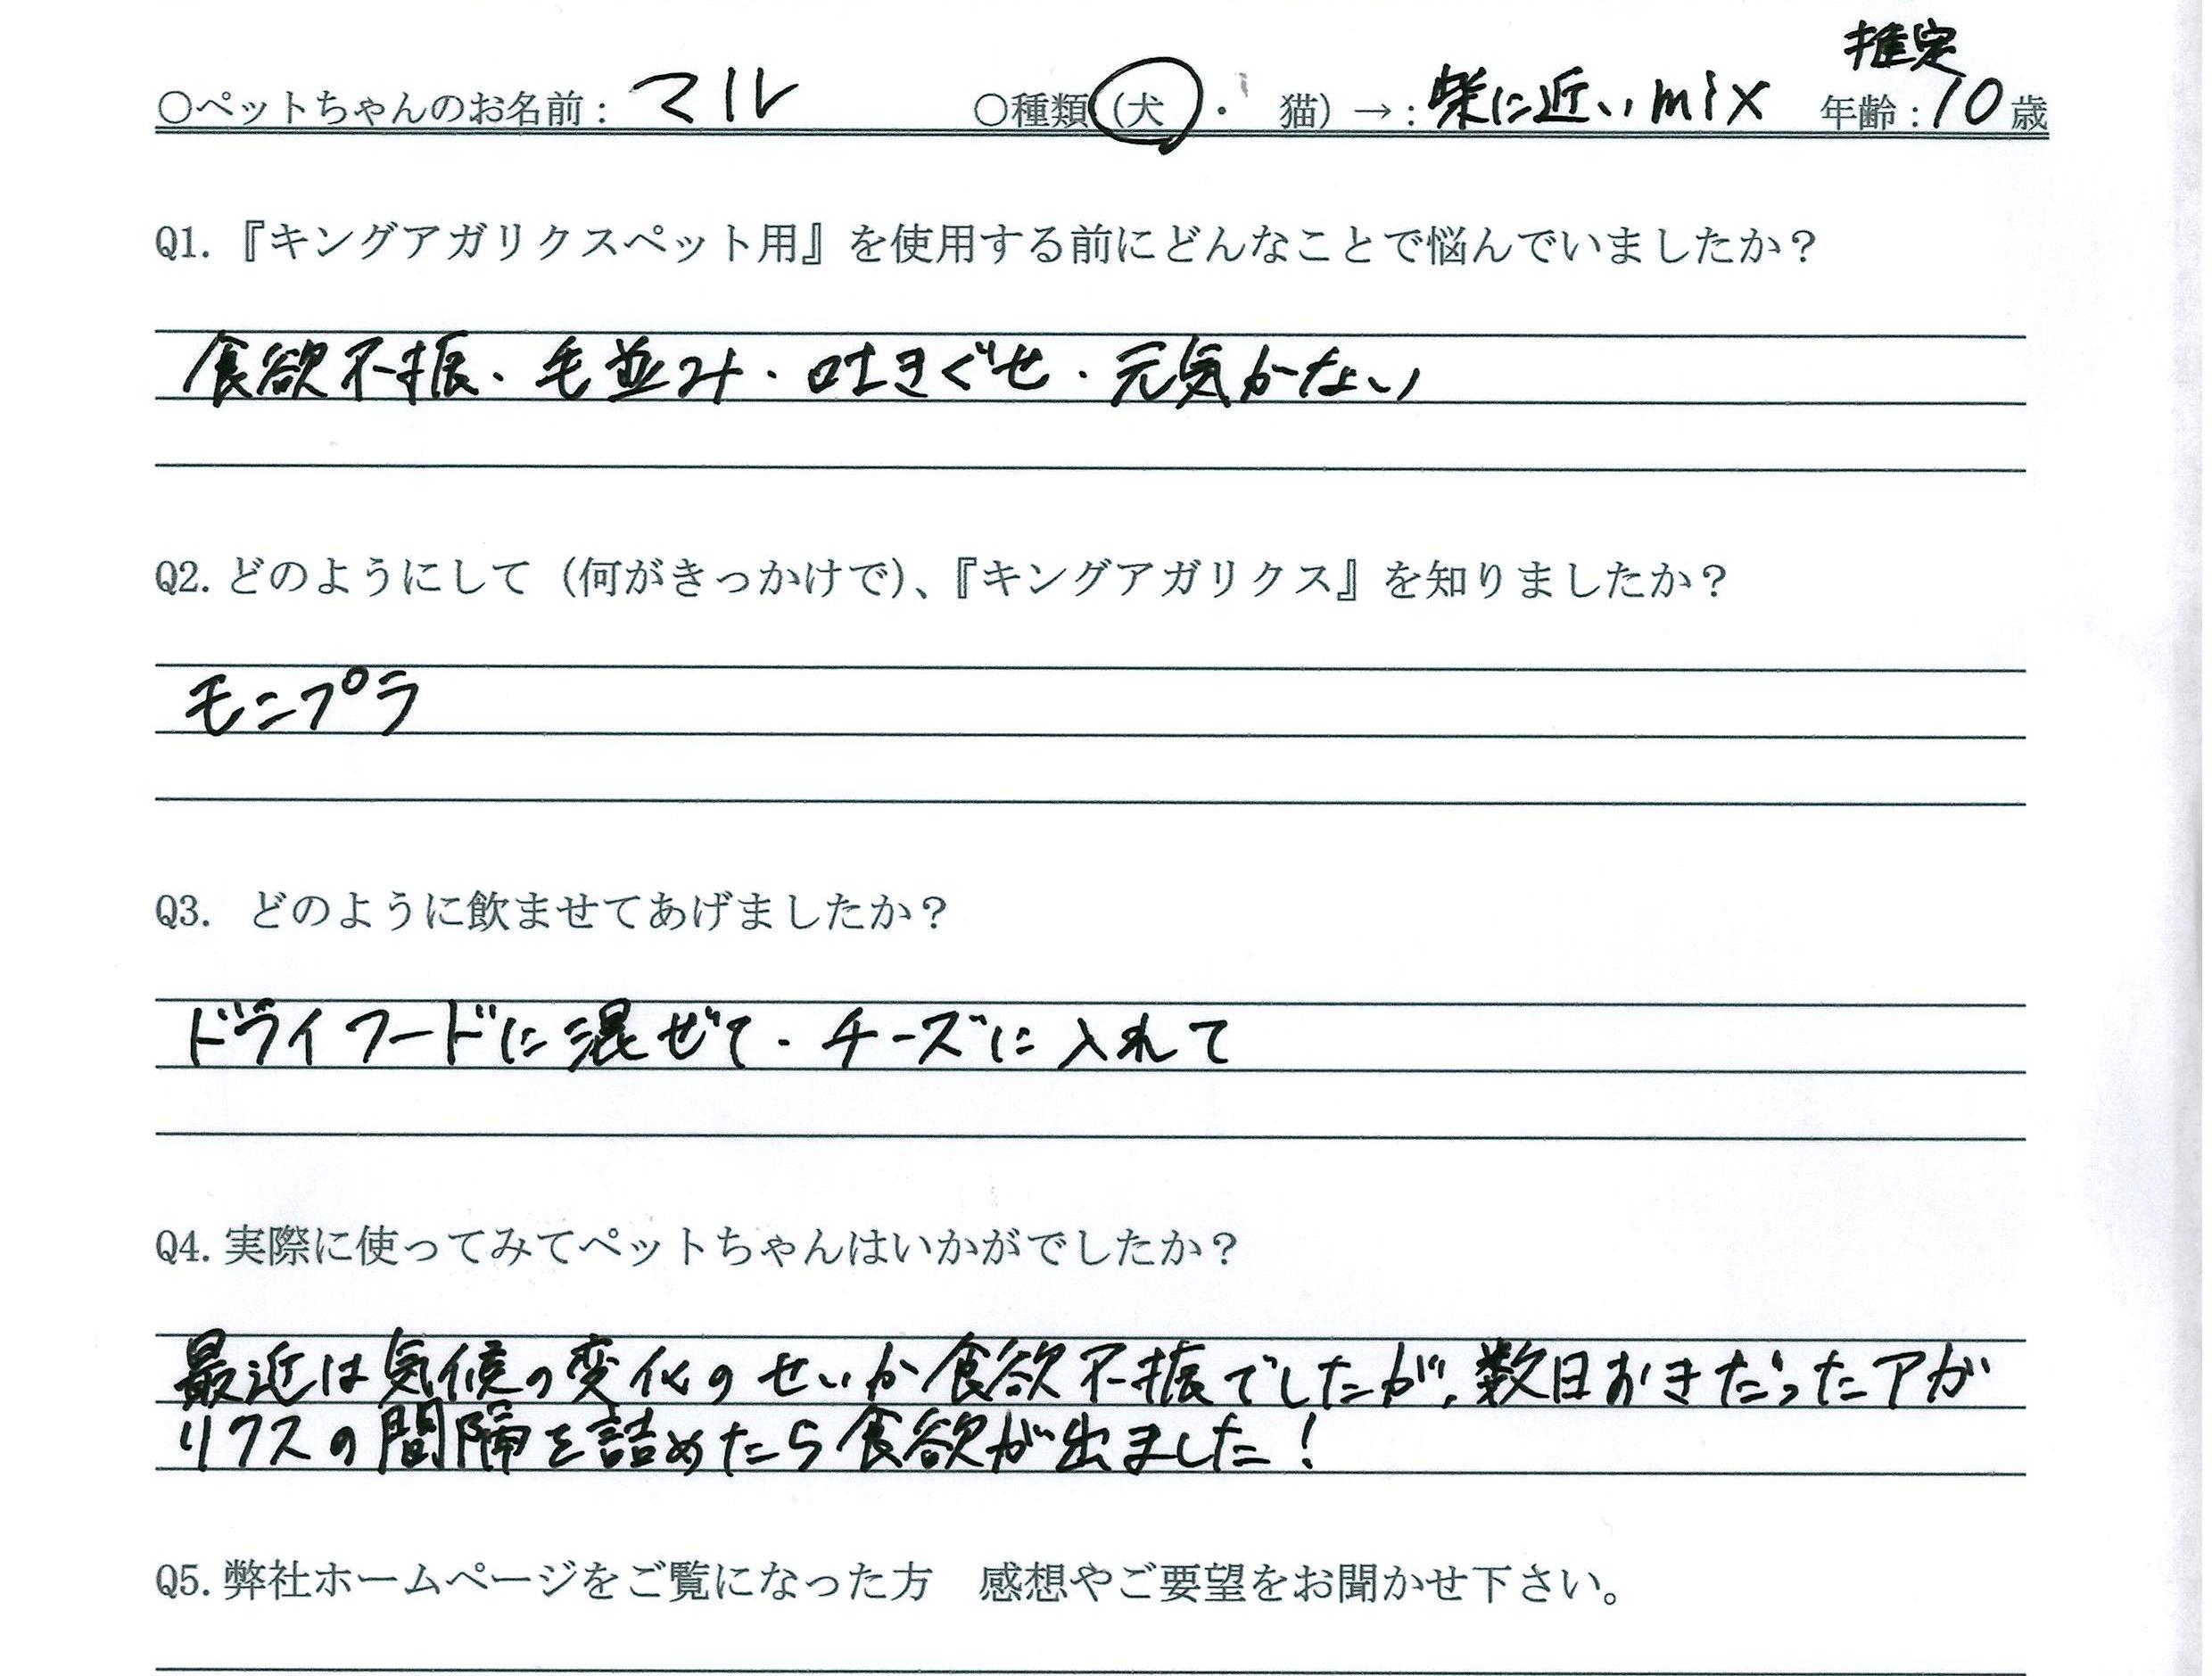 推定
○ペットちゃんのお名前：マル　○種類（犬・猫）→：柴に近いmix　年齢：10歳
Q1.『キングアガリクスペット用』を使用する前にどんなことで悩んでいましたか？
食欲不振・毛並み・吐きぐせ・元気がない
Q2.どのようにして（何がきっかけで）、『キングアガリクス』を知りましたか？
モニプラ
Q3. どのように飲ませてあげましたか？
ドライフードに混ぜて・チーズに入れて
Q4.実際に使ってみてペットちゃんはいかがでしたか？
最近は気候の変化のせいか食欲不振でしたが、数日おきだったアガ
リクスの間隔を詰めたら食欲が出ました！
Q5.弊社ホームページをご覧になった方　感想やご要望をお聞かせ下さい。